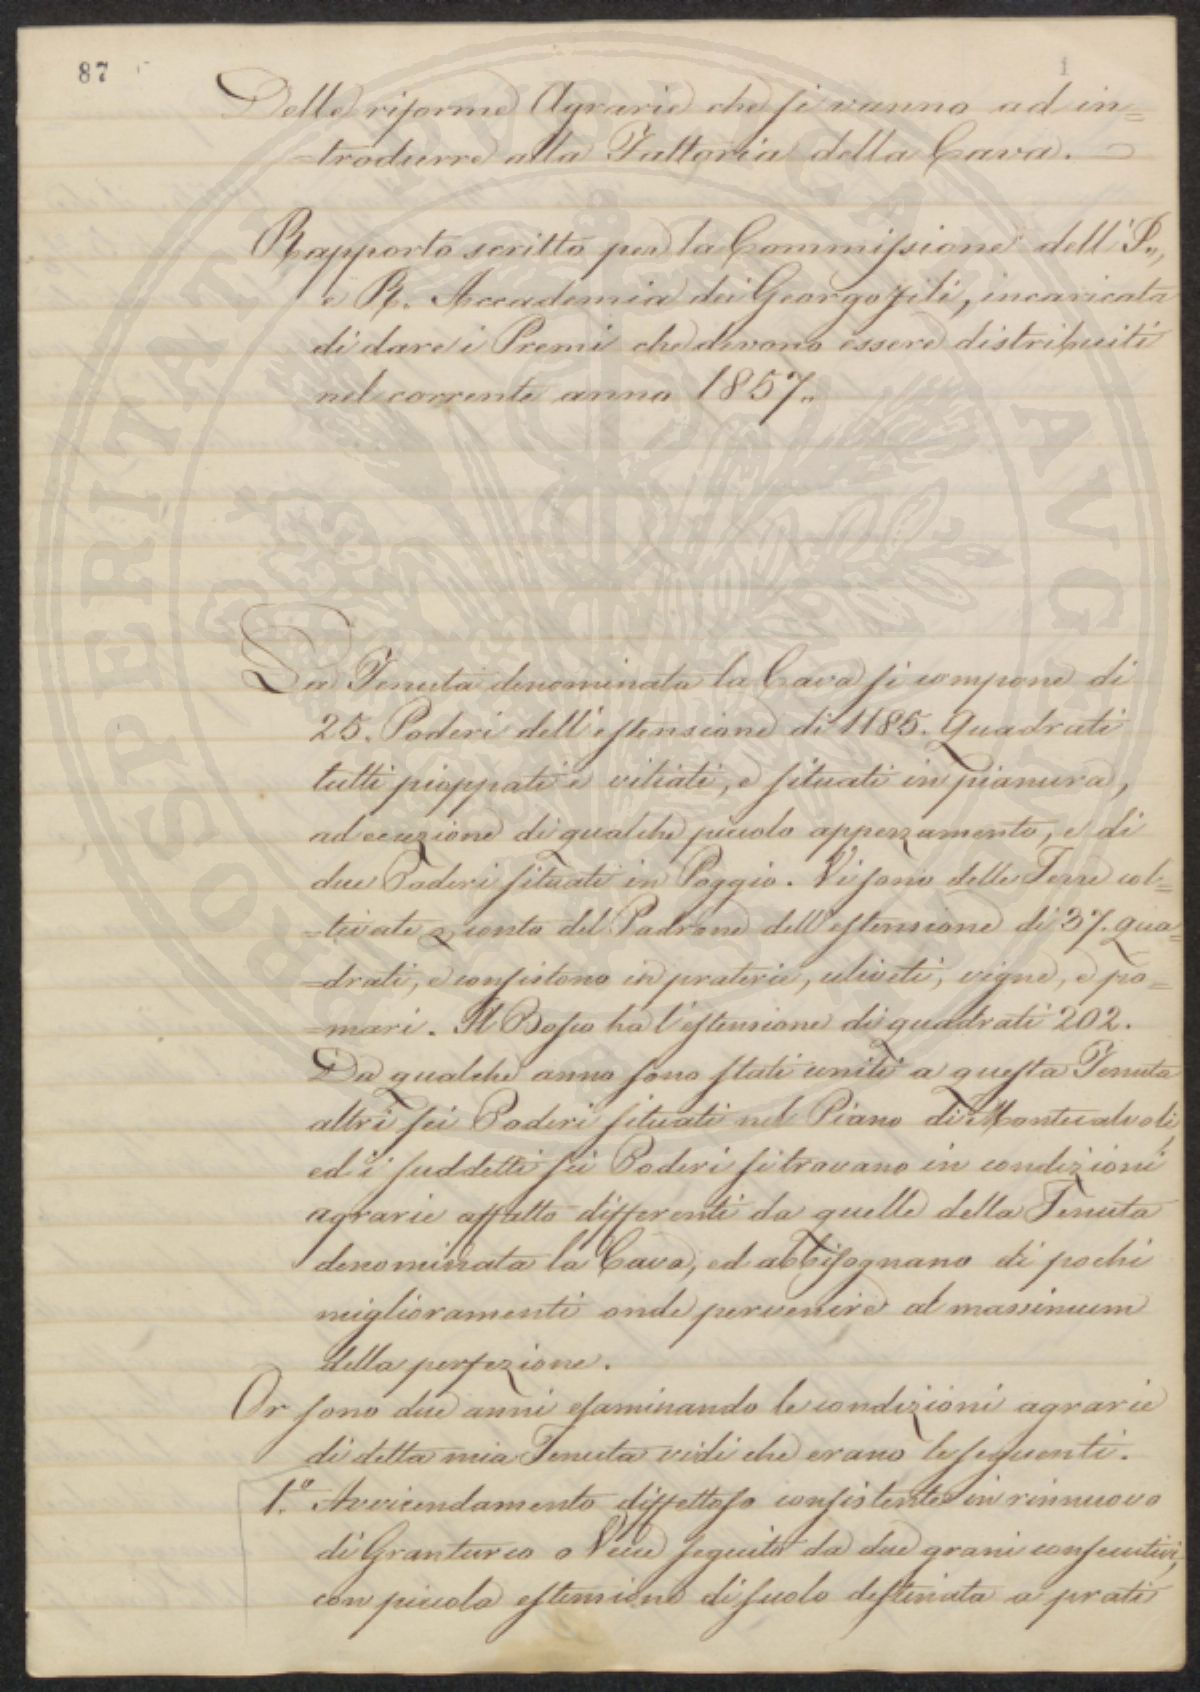 87
1
Delle riforme Agrarie che si vanno ad in=
=trodurre alla Fattoria della Cava.
Rapporto scritto per la Commissione dell'I.,
e R. Accademia dei Georgofili, incaricata
di dare i Premi che devono essere distribuiti
nel corrente anno 1857.,
La Tenuta denominata la Cava si compone di
25. Poderi dell'estensione di 1185. Quadrati
tutti pioppati e vitiati, e situati in pianura,
ad eccezione di qualche piccolo appezzamento, e di
due Poderi situati in Poggio. Vi sono delle Terre col=
=tivate a conto del Padrone dell'estensione di 37. qua=
=drati, e consistono in praterie, uliveti, vigne, e po=
=mari. Il Bosco ha l'estensione di quadrati 202.
Da qualche anno sono stati uniti a questa Tenuta
altri sei Poderi situati nel Piano di Montecalvoli,
ed i suddetti sei Poderi si trovano in condizioni
agrarie affatto differenti da quelle della Tenuta
denominata la Cava, ed abbisognano di pochi
miglioramenti onde pervenire al massimum
della perfezione.
Or sono due anni esaminando le condizioni agrarie
di detta mia Tenuta vidi che erano le seguenti.
1.º Avvicendamento difettoso consistente in rinnuovo
di Granturco o Vecce seguito da due grani consecutivi,
con piccola estensione di suolo destinata a prati
PROSPERITATI PUBLICAE AVGENDAE